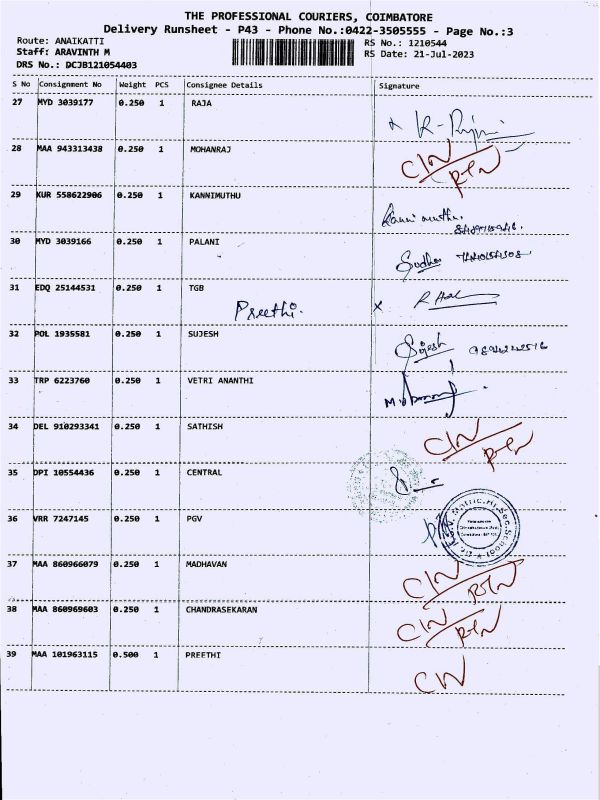 THE PROFESSIONAL COURIERS, COIMBATORE
Delivery Runsheet - P43 - Phone No.:0422-3505555 - Page No.:3
Route: ANAIKATTI
RS No.: 1210544
Staff: ARAVINTH M
RS Date: 21-Jul-2023
DRS No.: DCJB121054403
S No Consignment No Weight PCS Consignee Details Signature
27 MYD 3039177 0.250 1 RAJA
28 MAA 943313438 0.250 1 MOHANRAJ
CIN
RTN
29 KUR 558622906 0.250 1 KANNIMUTHU
Kannimuthu.
30 MYD 3039166 0.250 1 PALANI
Sudha
31 EDQ 25144531 0.250 1 TGB
Preethi. X
32 POL 1935581 0.250 1 SUJESH
Sujesh
33 TRP 6223760 0.250 1 VETRI ANANTHI
34 DEL 910293341 0.250 1 SATHISH
CIN
RTN
35 DPI 10554436 0.250 1 CENTRAL
36 VRR 7247145 0.250 1 PGV
Matric.Hr.Sec.School
37 MAA 860966079 0.250 1 MADHAVAN
CIN
RTN
38 MAA 860969603 0.250 1 CHANDRASEKARAN
CIN
RTN
39 MAA 101963115 0.500 1 PREETHI
CIN